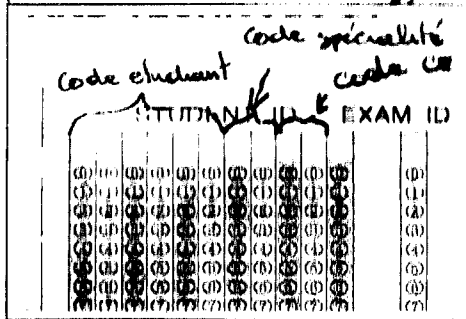 code spécialité
code étudiant
code
STUDENT ID EXAM ID
(0) (0) (0) (0) (0) (0) (0) (0) (0) (0) (0) (0)
(1) (1) (1) (1) (1) (1) (1) (1) (1) (1) (1) (1)
(2) (2) (2) (2) (2) (2) (2) (2) (2) (2) (2) (2)
(3) (3) (3) (3) (3) (3) (3) (3) (3) (3) (3) (3)
(4) (4) (4) (4) (4) (4) (4) (4) (4) (4) (4) (4)
(5) (5) (5) (5) (5) (5) (5) (5) (5) (5) (5) (5)
(6) (6) (6) (6) (6) (6) (6) (6) (6) (6) (6) (6)
(7) (7) (7) (7) (7) (7) (7) (7) (7) (7) (7) (7)